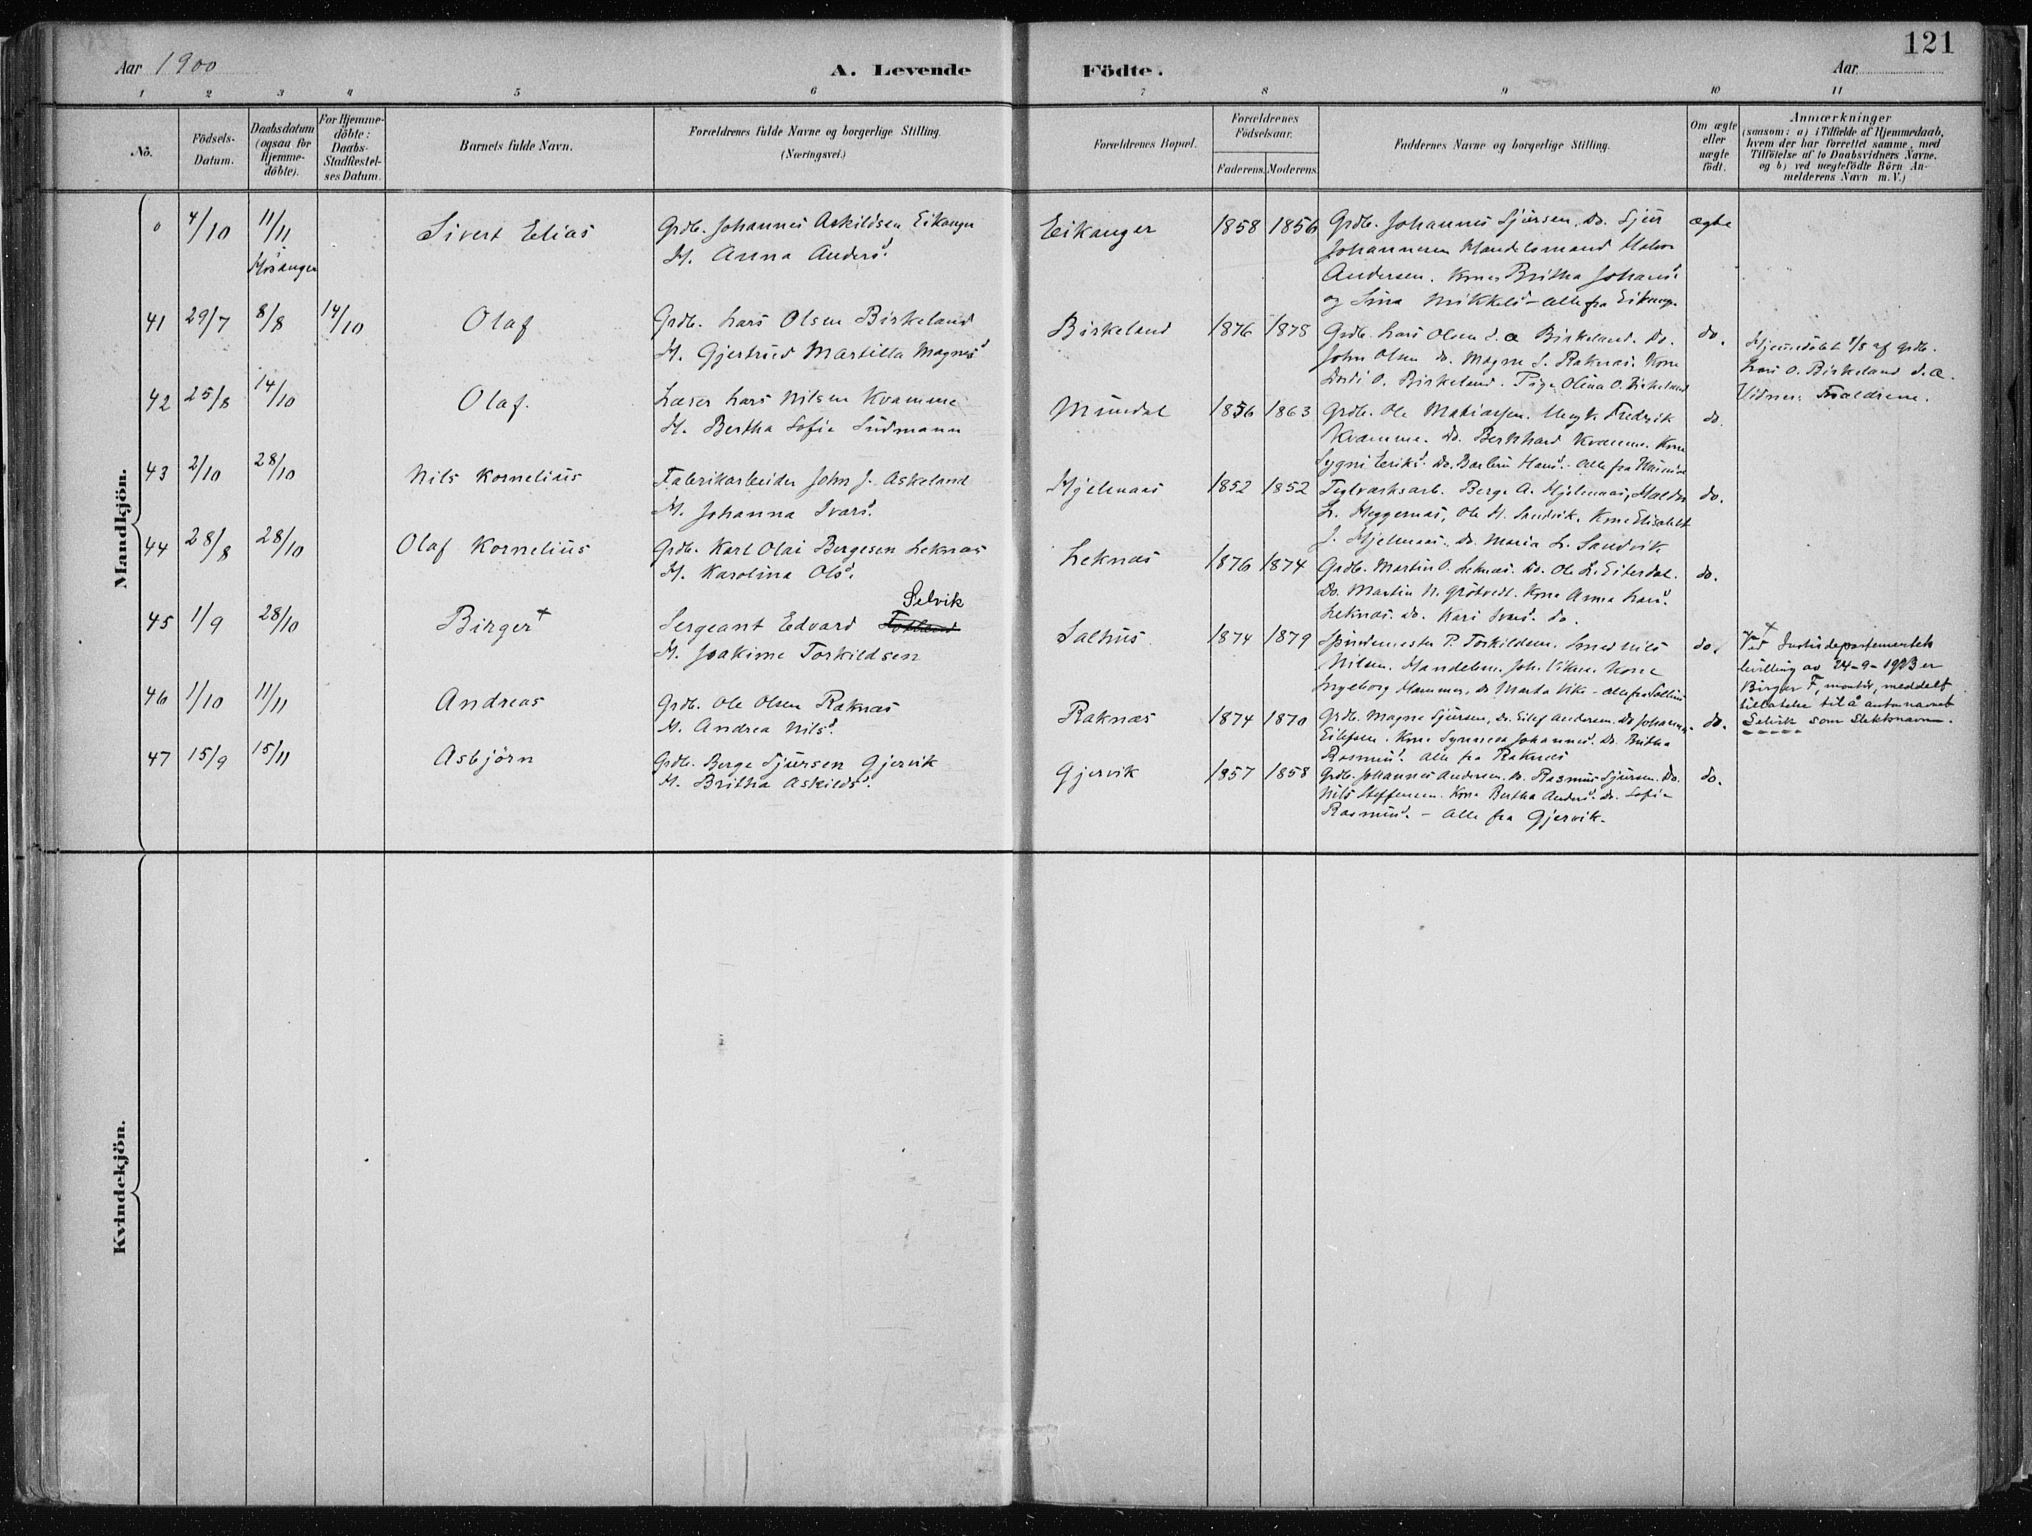 121
Aar 1900
A. Levende Födte.
Aar
1 2 3 4 5 6 7 8 9 10 11
Nô.
Födsels-
Datum.
Daabsdatum
(ogsaa for
Hjemme-
döbte).
For Hjemme-
döbte:
Daabs-
Stadfæstel-
ses Datum.
Barnets fulde Navn.
Forældrenes fulde Navne og borgerlige Stilling.
(Næringsvei.)
Forældrenes Bopæl.
Forældrenes
Födselsaar.
Faderens. Moderens.
Faddernes Navne og borgerlige Stilling.
Om ægte
eller
uægte
født.
Anmærkninger
(saasom: a) i Tilfælde af Hjemmedaab,
hvem der har forrettet samme, med
Tilföielse af to Daabsvidners Navne.
og b) ved uægtefödte Börn An-
melderens Navn m. V.)
Mandkjön.
4/10 11/11 Hosanger
Sivert Elias
Grdb. Johannes Askildsen Eikanger
H. Anna Andersd.
Eikanger 1858 1856
Grdb. Johannes Sjursen, Do. Sjur
Johannesen Handelsmand Halvor
Andersen. Kone Britha Johansd.
og Sina Mikkelsd - alle fra Eikanger
ægte
41 29/7 8/8 14/10
Olaf
Grdb. Lars Olsen Birkeland
H. Gjertrud Martilla Magnesd
Birkeland 1876 1878
Grdb. Lars Olsen d. a Birkeland. Do.
John Olsen do. Magne S. Raknes. Kone
Dordi O. Birkeland. Pige Olina O. Birkeland
do.
Hjemmedöbt 8/8 af grdb.
Lars O. Birkeland d. a.
Vidner: Forældrene.
42 25/8 14/10
Olaf.
Læser Lars Nilsen Kvamme
H. Bertha Sofie Sudmann
Mundal 1856 1863
Grdb. Ole Mathiassen. Ungk. Fredrik
Kvamme. Do. Bernhard Kvamme. Kone
Sygni Eriksd. Do. Barbru Hansd. - alle fra
do.
43 2/10 28/10
Nils Kornelius
Fabrikarbeider John J. Askeland
H. Johanna Ivarsd.
Hjelmaas 1852 1852
Teglværksarb. Berge A. Hjelmaas, Halder
L. Heggernæs, Ole H. Sandvik. Kone Elisabet
J. Hjelmaas. Do. Maria L. Sandvik
do.
44 28/8 28/10
Olaf Kornelius
Grdb. Karl Olai Bergesen Leknæs
H. Karolina Olsd.
Leknæs 1876 1874
Grdb. Martin O. Leknæs. Do. Ole L. Eiterdal.
Do. Martin N. Grötvedt. Kone Anna Larsd.
Leknæs. do. Kari Ivarsd. do.
do.
45 1/9 28/10
Birger +
Selvik
Sergeant Edvard
H. Joakime Torkildsen
Salhus 1874 1879
Spindemester P. Torkildsen. Smed Nils
Nilsen. Handelsm. Joh. Viken. Kone
Ingeborg Hammer, do Marta Vik - alle fra Salhus
do.
+ Ved Justisdepartementets
bevilling av 24-9-1923 er
Birger F, montör, meddelt
tillatelse til å anta navnet
Selvik som slektsnavn.
46 1/10 11/11
Andreas
Grdb. Ole Olsen Raknæs
H. Andrea Nilsd.
Raknæs 1874 1870
Grdb. Magne Sjursen, Do. Eilef Andersen. Do Johannes
Eilefsen. Kone Synneva Johannesd. Do. Britha
Rasmusd. Alle fra Raknes
do.
47 15/9 15/11
Asbjörn
Grdb. Berge Sjursen Gjervik
H. Britha Askildsd.
Gjervik 1857 1858
Grdb. Johannes Andersen, do. Rasmus Sjursen. Do.
Nils Steffensen. Kone Bertha Andersd. Do. Sofie
Rasmusd. - alle fra Gjervik.
do.
Kvindekjön.